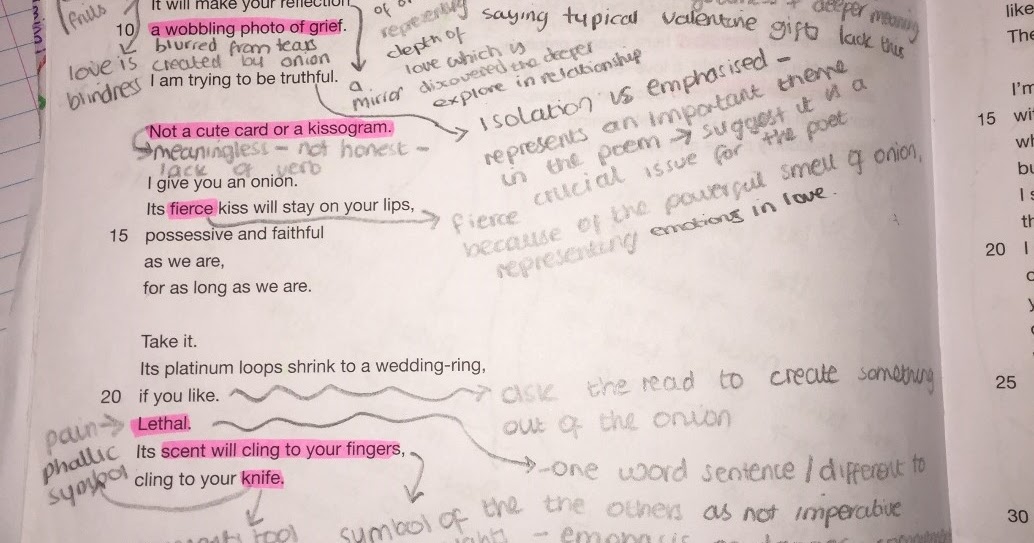 It will make your reflection
frills
10 a wobbling photo of grief.
blurred from tears
love is created by onion
blindness
I am trying to be truthful.
representing
depth of
love which is
discovered the deeper
explore in relationship
a
mirror
deeper meaning
saying typical valentine gift lack this
Not a cute card or a kissogram.
meaningless – not honest –
lack of verb
I give you an onion.
Its fierce kiss will stay on your lips,
15 possessive and faithful
as we are,
for as long as we are.
Isolation is emphasised –
represents an important theme
in the poem → suggest it is a
crucial issue for the poet
fierce
because of the powerful smell of onion,
representing emotions in love.
Take it.
Its platinum loops shrink to a wedding-ring,
20 if you like.
ask the read to create something
out of the onion
pain→
Lethal.
phallic
symbol
Its scent will cling to your fingers,
cling to your knife.
–one word sentence / different to
the others as not imperative
symbol of the
tool
– emphasis
like
The
I'm
15 wi
wh
bu
I s
th
20 I
25
30